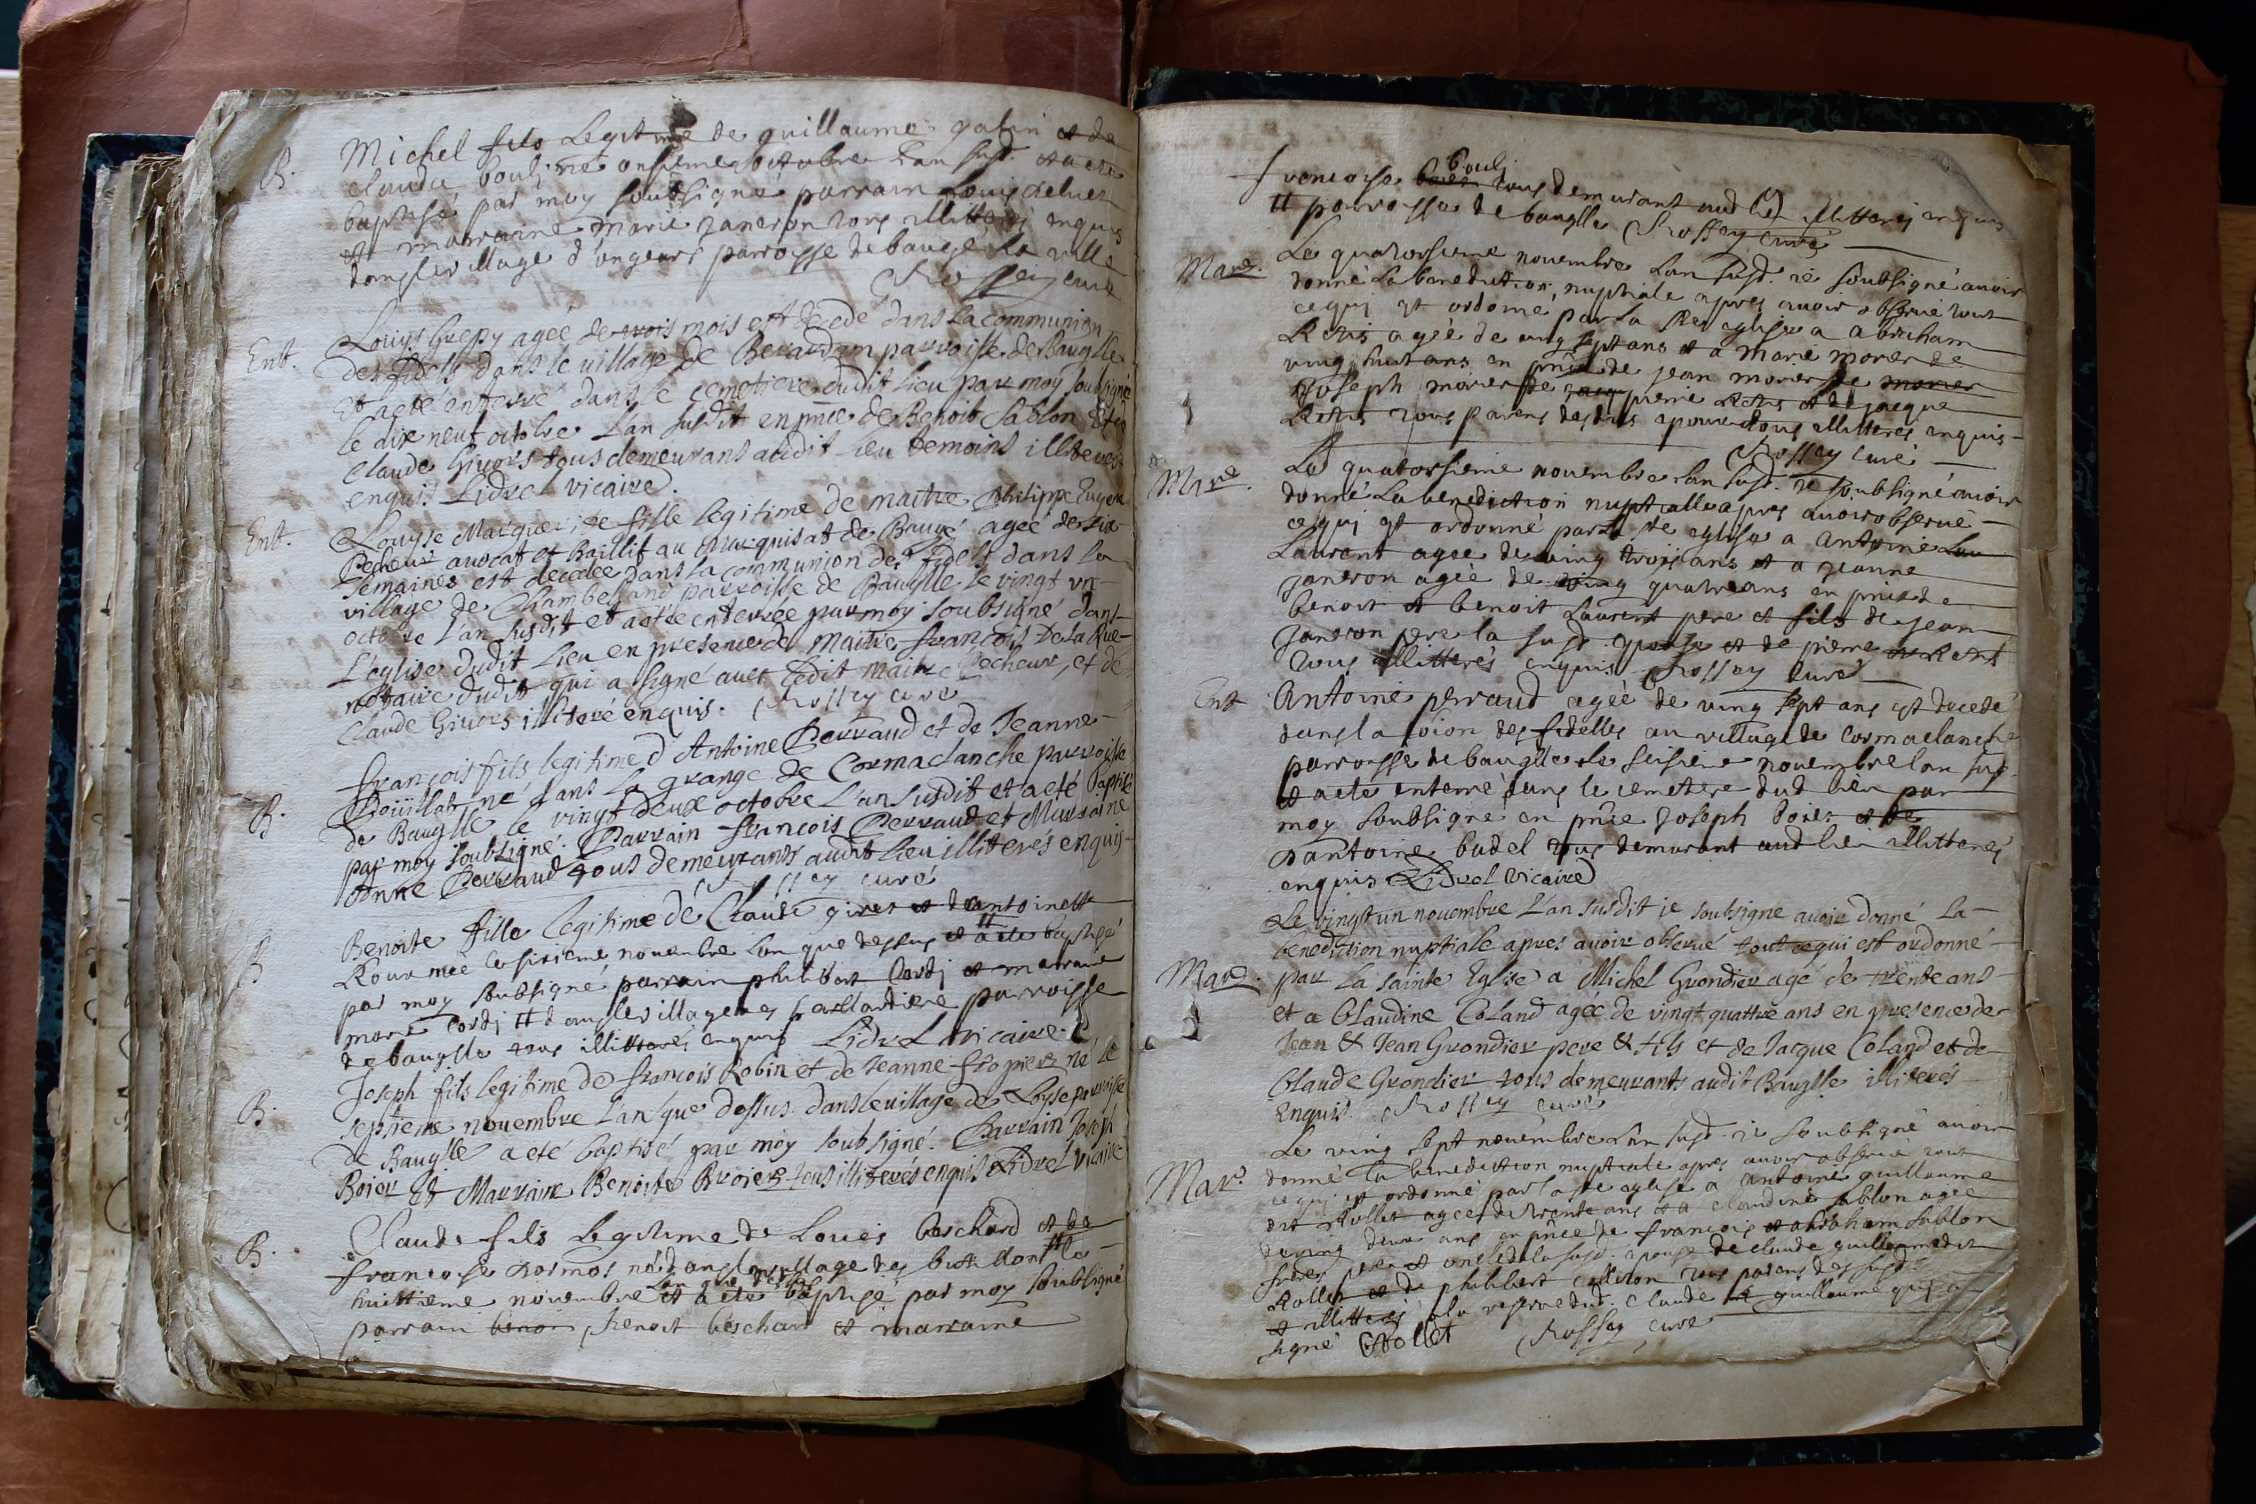 B. Michel fils Legitime de guillaume galin et de
claudа boulj né onsieme octobre Lan susd. et a ete
baptisé par moy soubsigné parrain Louis
et marraine marie janeron tous illitterés enquis
dans le village d'ongears parroisse de baugé la ville
Rossey curé
Ent. Louys Crepy ageé de trois mois est decedé dans la communion
des fidels dans le village de Beraudon parroisse de Baugllé
Et a eté enterré dans le cemetiere dudit lieu par moy soubsigné
le dix neuf octobre L'an susdit en pnce de Benoit Sablon et de
Claude Givors tous demeurans audit lieu temoins illiterés
enquis Lidrel vicaire.
Ent. Louyse Marguerite fille legitime de maitre Philippe Eugene
Pecheur avocat et Baillif au Marquisat de Baugé ageé de six
semaines est decedeé dans la communion des fidels dans le
village de Chambelland parroisse de Baugllé le vingt un
octobre L'an susdit et a eté enterreé par moy soubsigné dans
L'eglise dudit lieu en presence de maitre françois De la Rue
notaire dudit qui a signé avec ledit maitre Pecheur, et de
Claude Givors illiteré enquis. Rossey curé
B. françois fils legitime d'Antoine Perraud et de Jeanne
Bouillat, né dans la grange de Cormaclanche parroisse
de Baugllé le vingt deux octobre L'an susdit et a eté baptisé
par moy soubsigné. Parrain françois Perraud et Marraine
Anne Perraud tous demeurants audit lieu illiterés enquis
Rossey curé
B. Benoite fille legitime de Claude givet et dantoinette
Rour née le sisieme novembre Lan que dessus et a ete baptisé
par moy soubsigné parrain philibert Cordj et marraine
marie Cordj # dans le village des parroisse
de baugllé tous illitterés enquis Lidrel vicaire
B. Joseph fils legitime de françois Robin et de Jeanne né le
septieme novembre L'an que dessus dans le village de Loyse parroisse
de Baugllé a eté baptisé par moy soubsigné. Parrain Joseph
Boier Et Marraine Benoite Broier tous illiterés enquis Lidrel vicaire
B. Claude fils Legitime de Louis beschard et de
francoise né dans le village des butillons # le
huittieme novembre Lan que dessus et a ete baptisé par moy soubsigné
parrain benoit benoit beschard et marraine
francoise boulj tous demurant aud lieu illitterés enquis
# parroisse de baugllé Rossey curé
Mare. Le quatorsieme novembre Lan susd. ie soubsigné avoir
donné la benediction nuptiale apres avoir observé tout
ce qui est ordonné par la Ste eglise a Abraham
Retis ageé de ving sept ans et a marie morier de
ving huit ans en pnce de jean morier de morier
Joseph morier de pierre Retis et de jacque
Retis tous parens desdits epoux tous illitteres enquis
Rossey curé
Mare. Le quatorsieme novembre Lan susd. ie soubsigné avoir
donné La benediction nuptialle apres avoir observé
ce qui est ordonné par la Ste eglise a antoine Lau
Laurent agee de ving trois ans et a jeanne
janeron ageé de ving quatre ans en pnce de
benoit et benoit Laurent pere et fils de jean
janeron pere la susd. epouse et de pierre
tous illitterés enquis Rossey curé
Ent Antoine perraud ageé de ving sept ans est decedé
dans la ion des fidelles au village de cormaclanche
parroisse de baugllé le seisieme novembre lan susd.
et a ete enterré dans le cemetere dud lieu par
moy soubsigné en pnce joseph boier et de
dantoine budel tous demurant aud lieu illitterés
enquis Lidrel vicaire
Mare. Le vingt un novembre L'an susdit je soubsigné avoir donné La
benediction nuptiale apres avoir observé tout ce qui est ordonné
par La sainte Eglise a Michel Grondier agé de trente ans
et a Claudine Coland ageé de vingt quattre ans en presence de
Jean & Jean Grondier pere & fils et de Jacque Coland et de
Claude Grondier tous demeurants audit Baugllé illiterés
Enquis. Rossey curé
Mare. Le ving sept novembre Lan susd. ie soubsigné avoir
donné La benediction nuptiale apres avoir observé tout
ce qui est ordonné par la Ste eglise a antoine guillaume
dit Rollet agee de trente ans et a claudine sablon agée
de ving deux ans en pnce de françois et abraham sablon
pere et oncle de la susd. epouse de claude guillaume dit
Rollet et de philibert tous parens des susd.
et illitterés a la reserve dud. Claude guillaume qui a
signé CRollet Rossey curé